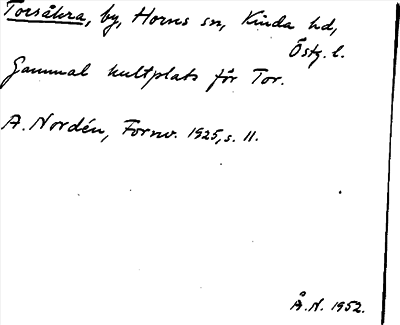 Torsåkra, by, Horns sn, Kinda hd,
Östg. l.
Gammal kultplats för Tor.
A. Nordén, Fornv. 1925, s. 11.
Å.N. 1952.